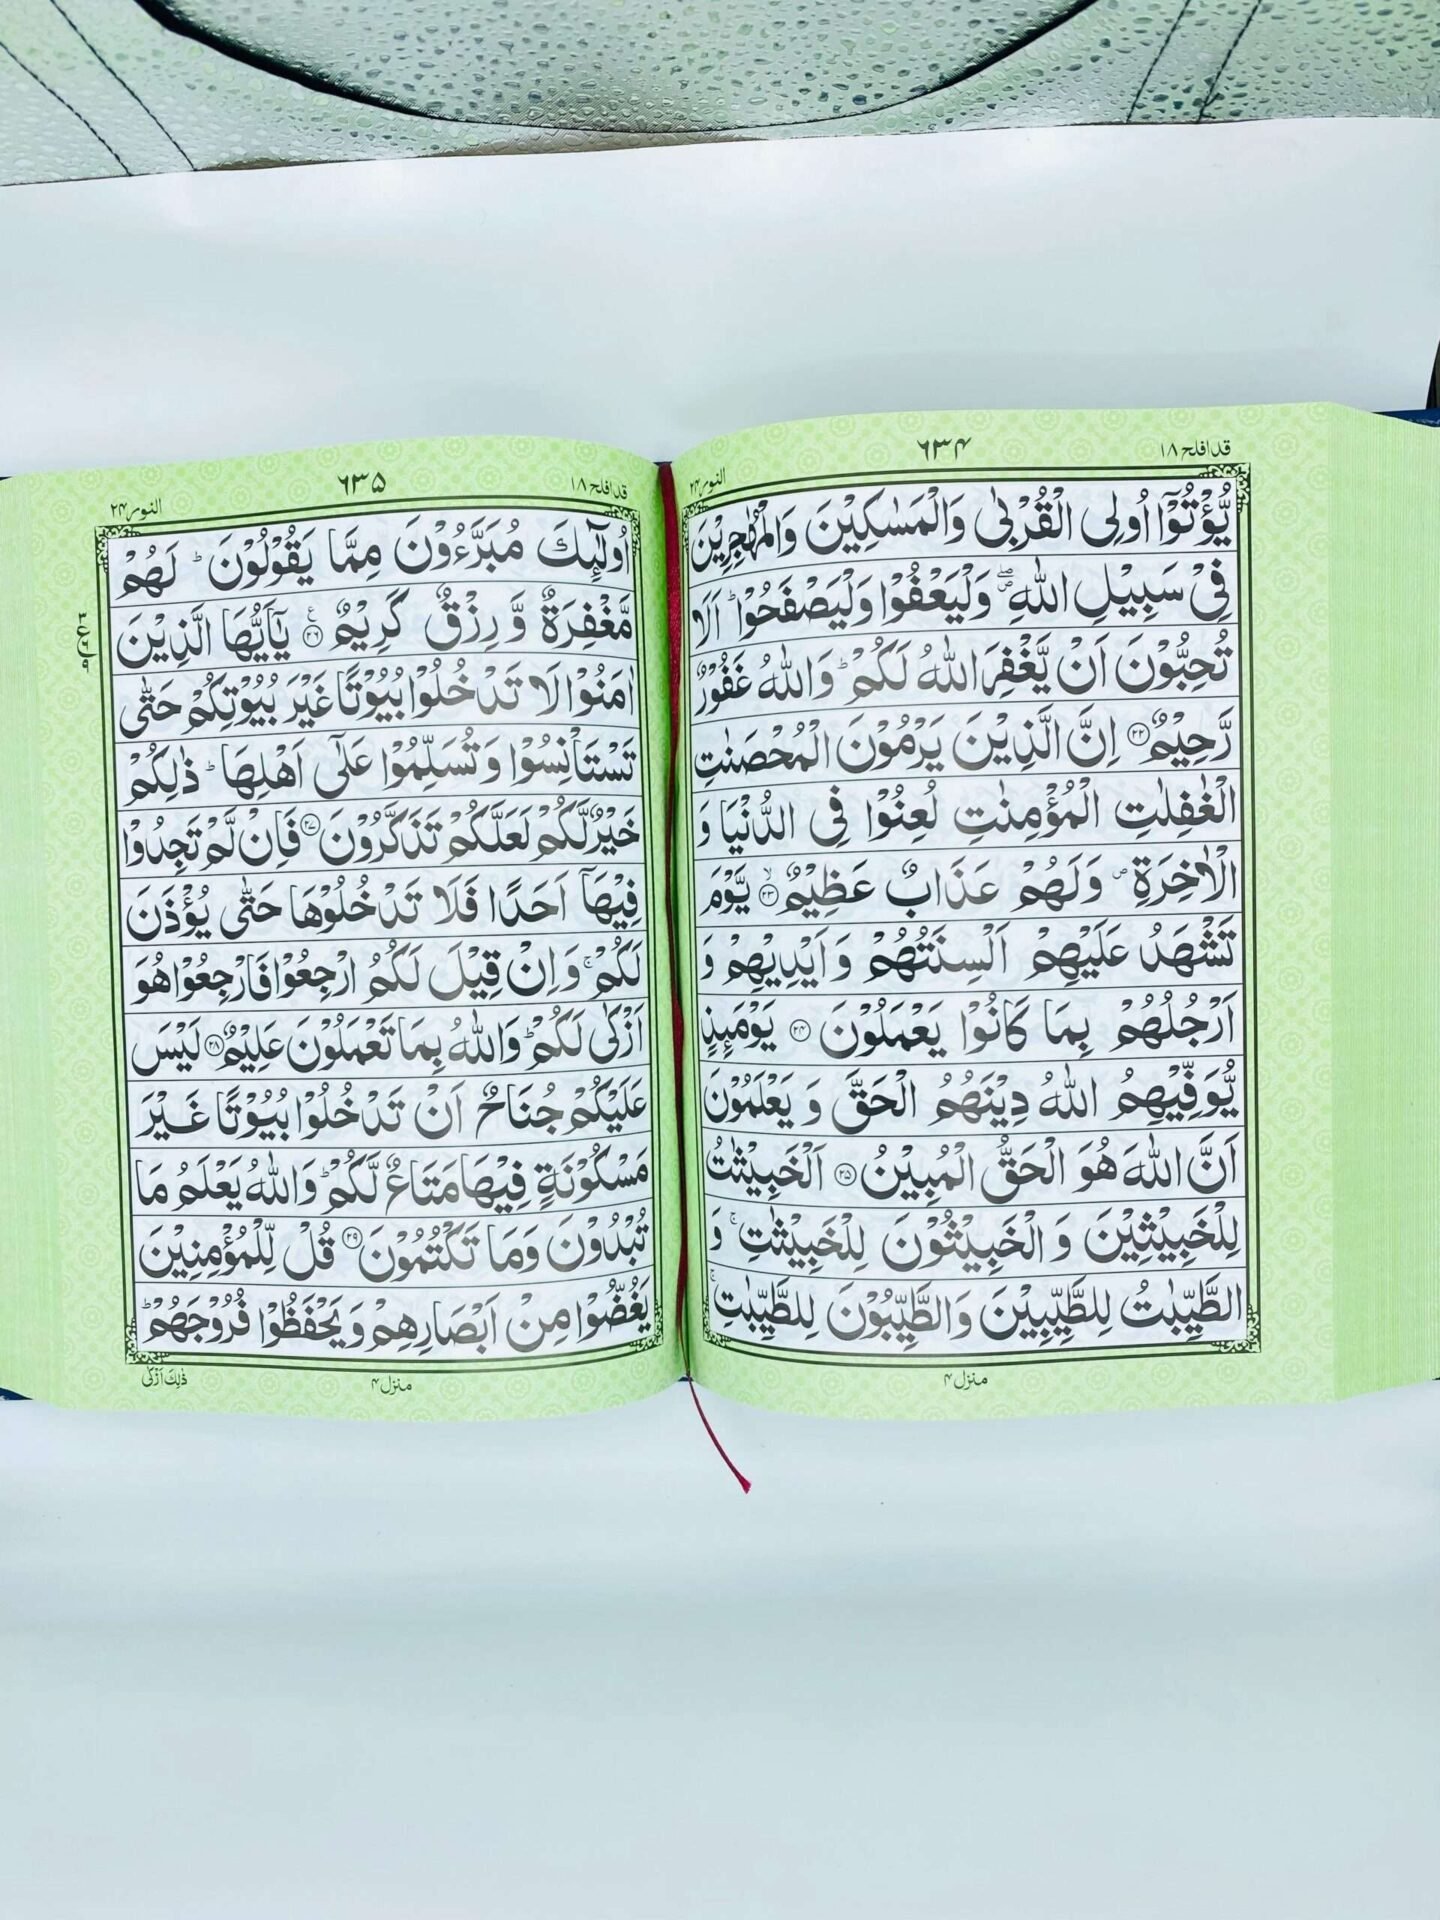 قد افلح ١٨
٦٣۴
النور ٢۴
يُّؤْتُوْٓا اُولِى الْقُرْبٰى وَالْمَسٰكِيْنَ وَالْمُهٰجِرِيْنَ
فِيْ سَبِيْلِ اللّٰهِ ۖ وَلْيَعْفُوْا وَلْيَصْفَحُوْا ؕ اَلَا
تُحِبُّوْنَ اَنْ يَّغْفِرَ اللّٰهُ لَكُمْ ؕ وَاللّٰهُ غَفُوْرٌ
رَّحِيْمٌ ٢٢ اِنَّ الَّذِيْنَ يَرْمُوْنَ الْمُحْصَنٰتِ
الْغٰفِلٰتِ الْمُؤْمِنٰتِ لُعِنُوْا فِى الدُّنْيَا وَ
الْاٰخِرَةِ ۪ وَلَهُمْ عَذَابٌ عَظِيْمٌ ۙ ٢٣ يَّوْمَ
تَشْهَدُ عَلَيْهِمْ اَلْسِنَتُهُمْ وَاَيْدِيْهِمْ وَ
اَرْجُلُهُمْ بِمَا كَانُوْا يَعْمَلُوْنَ ٢۴ يَوْمَىِٕذٍ
يُّوَفِّيْهِمُ اللّٰهُ دِيْنَهُمُ الْحَقَّ وَ يَعْلَمُوْنَ
اَنَّ اللّٰهَ هُوَ الْحَقُّ الْمُبِيْنُ ٢۵ اَلْخَبِيْثٰتُ
لِلْخَبِيْثِيْنَ وَ الْخَبِيْثُوْنَ لِلْخَبِيْثٰتِ ۚ وَ
الطَّيِّبٰتُ لِلطَّيِّبِيْنَ وَالطَّيِّبُوْنَ لِلطَّيِّبٰتِ ۚ
منزل ۴
قد افلح ١٨
٦٣۵
النور ٢۴
اُولٰٓىِٕكَ مُبَرَّءُوْنَ مِمَّا يَقُوْلُوْنَ ؕ لَهُمْ
مَّغْفِرَةٌ وَّ رِزْقٌ كَرِيْمٌ ٢٦ ع يٰٓاَيُّهَا الَّذِيْنَ
اٰمَنُوْا لَا تَدْخُلُوْا بُيُوْتًا غَيْرَ بُيُوْتِكُمْ حَتّٰى
تَسْتَاْنِسُوْا وَتُسَلِّمُوْا عَلٰٓى اَهْلِهَا ؕ ذٰلِكُمْ
خَيْرٌ لَّكُمْ لَعَلَّكُمْ تَذَكَّرُوْنَ ٢٧ فَاِنْ لَّمْ تَجِدُوْا
فِيْهَآ اَحَدًا فَلَا تَدْخُلُوْهَا حَتّٰى يُؤْذَنَ
لَكُمْ ۚ وَاِنْ قِيْلَ لَكُمُ ارْجِعُوْا فَارْجِعُوْا هُوَ
اَزْكٰى لَكُمْ ؕ وَاللّٰهُ بِمَا تَعْمَلُوْنَ عَلِيْمٌ ٢٨ لَيْسَ
عَلَيْكُمْ جُنَاحٌ اَنْ تَدْخُلُوْا بُيُوْتًا غَيْرَ
مَسْكُوْنَةٍ فِيْهَا مَتَاعٌ لَّكُمْ ؕ وَاللّٰهُ يَعْلَمُ مَا
تُبْدُوْنَ وَمَا تَكْتُمُوْنَ ٢٩ قُلْ لِّلْمُؤْمِنِيْنَ
يَغُضُّوْا مِنْ اَبْصَارِهِمْ وَيَحْفَظُوْا فُرُوْجَهُمْ ؕ
منزل ۴
ذٰلِكَ اَزْكٰى